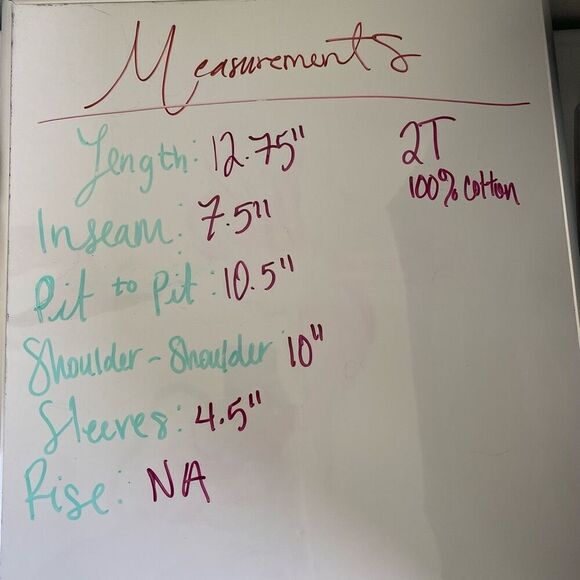 Measurements
Length: 12.75"
2T
100% cotton
Inseam: 7.5"
Pit to Pit: 10.5"
Shoulder-Shoulder 10"
Sleeves: 4.5"
Rise: NA